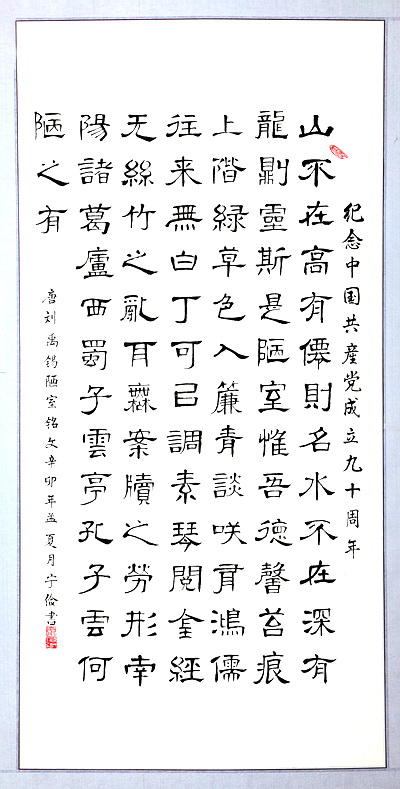 纪念中国共產党成立九十周年
山不在高有僊則名水不在深有
龍則靈斯是陋室惟吾德馨苔痕
上階緑草色入簾青談咲有鴻儒
往来無白丁可已調素琴閲金經
无絲竹之亂耳無案牘之勞形南
陽諸葛廬西蜀子雲亭孔子雲何
陋之有
唐刘禹锡陋室铭文辛卯年孟夏月宇俭書